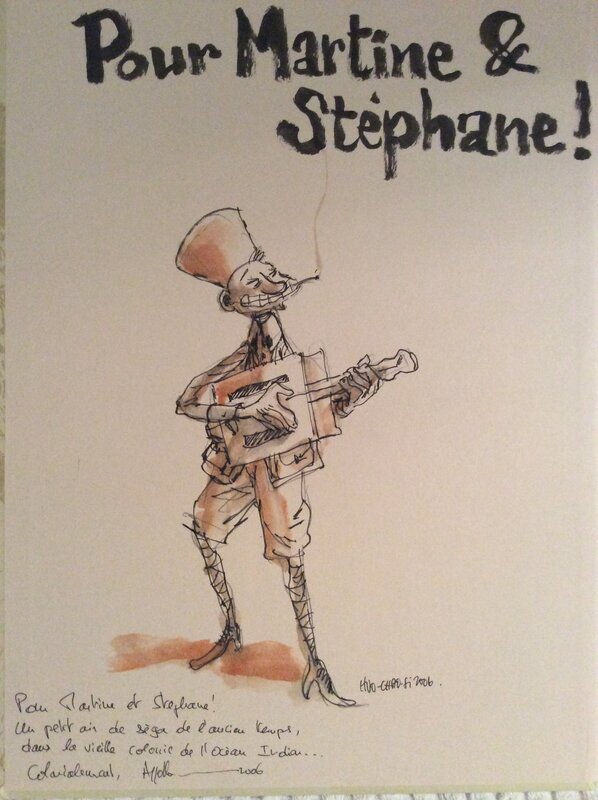 Pour Martine &
Stéphane!
HUO-CHAO-SI 2006.
Pour Martine et Stéphane!
Un petit air de séga de l'ancien temps,
dans la vieille colonie de l'Océan Indien...
Colonialement, Appollo 2006